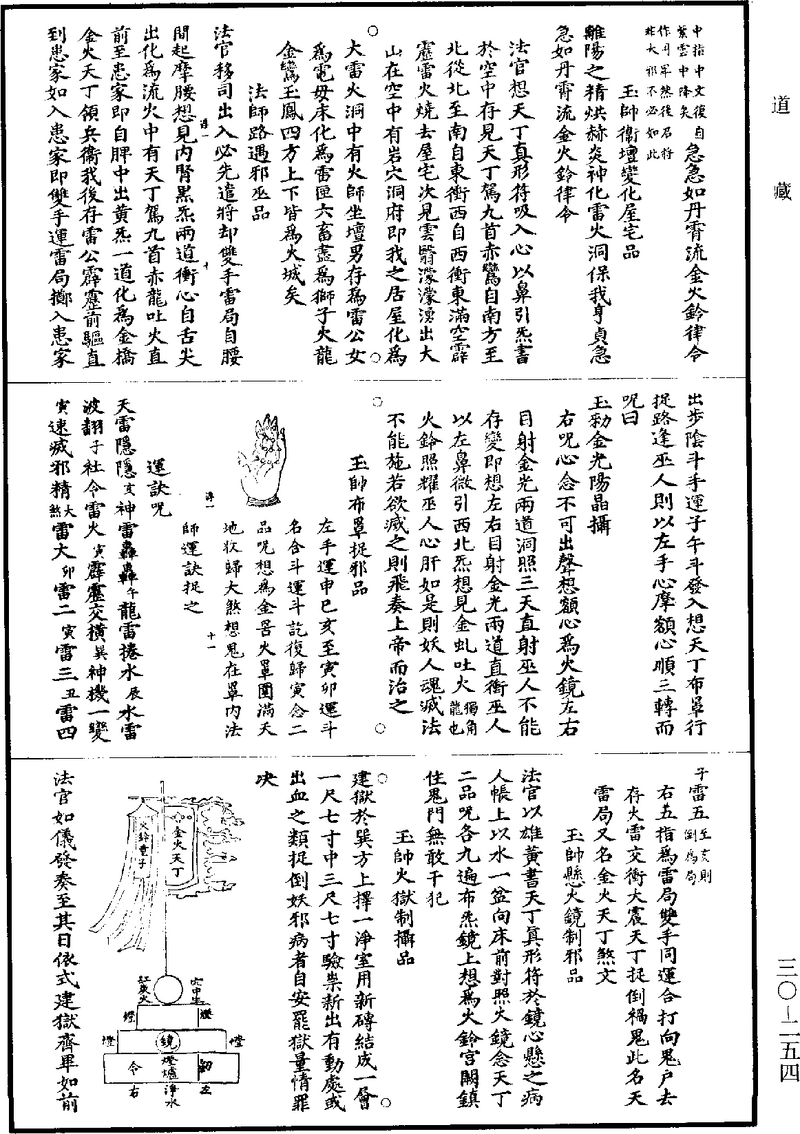 道藏
中指中文復自
紫雲中降矣
作用畢然後召将
非大邪不必如此
急急如丹霄流金火鈴律令
玉帥衞壇變化屋宅品
離陽之精烘赫炎神化雷火洞保我身貞急
急如丹霄流金火鈴律令
法官想天丁真形符吸入心以鼻引炁書
於空中存見天丁駕九首赤鸞自南方至
北從北至南自東衝西自西衝東滿空霹
靂雷火燒去屋宅次見雲翳濛濛湧出大
山在空中有岩穴洞府即我之居屋化為
大雷火洞中有火師坐壇男存為雷公女
為電母床化為雷匣六畜盡為獅子火龍
金鸞玉鳳四方上下皆為火城矣
法師路遇邪巫品
法官移司出入必先遣將却雙手雷局自腰
間起摩腰想見內腎黑炁兩道衝心自舌尖
出化為流火中有天丁駕九首赤龍吐火直
前至患家即自脾中出黄炁一道化為金橋
金火天丁領兵衞我後存雷公霹靂前驅直
到患家如入患家即雙手運雷局擲入患家
出步陰斗手運子午斗發入想天丁布罩行
捉路逢巫人則以左手心摩額心順三轉而
呪曰
玉勑金光陽晶攝
右呪心念不可出聲想額心為火鏡左右
目射金光兩道洞照三天直射巫人不能
存變即想左右目射金光兩道直衝巫人
以左鼻微引西北炁想見金虬吐火獨角龍也
火鈴照耀巫人心肝如是則妖人魂滅法
不能施若欲滅之則飛奏上帝而治之
玉帥布罩捉邪品
左手運申巳亥至寅卯運斗
名合斗運斗訖復歸寅念二
品呪想為金罟火罩圍滿天
地收歸大煞想鬼在罩内法
師運訣捉之
運訣呪
天雷隱隱亥神雷轟轟午龍雷捲水辰水雷
波翻子社令雷火寅霹靂交橫巽神機一變
寅速滅邪精大煞雷大卯雷二寅雷三丑雷四
子雷五至亥則倒為局
右五指為雷局雙手同運合打向鬼戶去
存火雷交衝大震天丁捉倒禍鬼此名天
雷局又名金火天丁煞文
玉帥懸火鏡制邪品
法官以雄黄書天丁真形符於鏡心懸之病
人帳上以水一盆向床前對照火鏡念天丁
二品呪各九遍布炁鏡上想為火鈴宫闕鎮
住鬼門無敢干犯
玉帥火獄制攝品
建獄於巽方上擇一淨室用新磚結成一層
一尺七寸中三尺七寸驗祟新出有動處或
出血之類捉倒妖邪病者自安罷獄量情罪
决
金火天丁
火鈴童子
燈
燈
燈
燈
鏡
令
劒
燈爐
右
淨水
左
法官如儀發奏至其日依式建獄齊畢如前
三〇-二五四